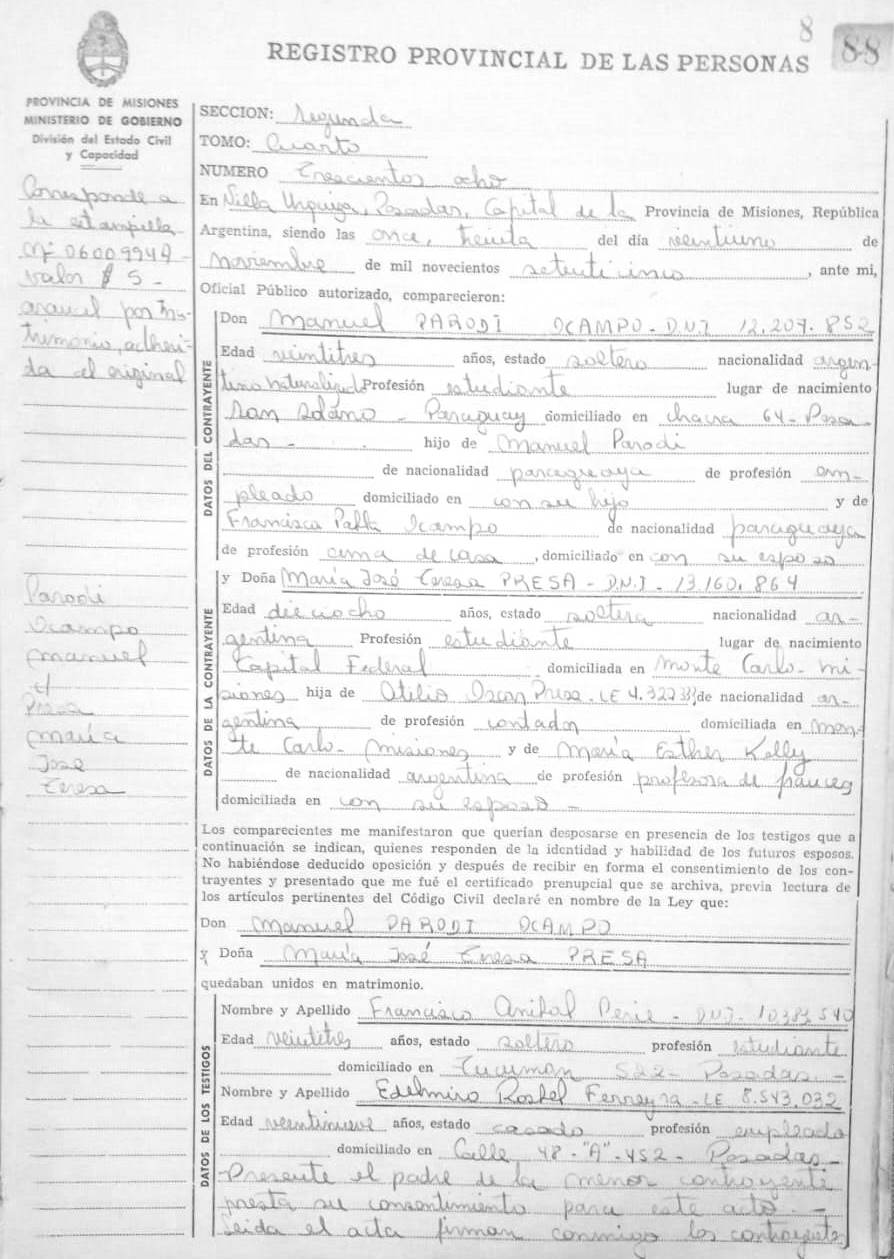 8
88
REGISTRO PROVINCIAL DE LAS PERSONAS
PROVINCIA DE MISIONES
MINISTERIO DE GOBIERNO
División del Estado Civil
y Capacidad
Corresponde a
la estampilla
Nº 06009949
valor $ 5 -
arancel por Ma-
trimonio, adheri-
da al original
Parodi
Ocampo
Manuel
y
Presa
María
José
Teresa
SECCION: Segunda
TOMO: Cuarto
NUMERO Trescientos ocho
En Villa Urquiza, Posadas, Capital de la Provincia de Misiones, República
Argentina, siendo las once, treinta del día veintiuno de
noviembre de mil novecientos setenticinco, ante mi,
Oficial Público autorizado, comparecieron:
DATOS DEL CONTRAYENTE
Don Manuel PARODI OCAMPO - D.N.I 12.207.852
Edad veintitres años, estado soltero nacionalidad argen-
tino naturalizado Profesión estudiante lugar de nacimiento
San Solano - Paraguay domiciliado en chacra 64 - Posa-
das - hijo de Manuel Parodi
de nacionalidad paraguaya de profesión em-
pleado domiciliado en con su hijo y de
Francisca Ocampo de nacionalidad paraguaya
de profesión ama de casa, domiciliado en con su esposo
DATOS DE LA CONTRAYENTE
y Doña María José Teresa PRESA - D.N.I - 13.160.864
Edad dieciocho años, estado soltera nacionalidad ar-
gentina Profesión estudiante lugar de nacimiento
Capital Federal domiciliada en Monte Carlo - Mi-
siones hija de Atilio Oscar Presa - LE de nacionalidad ar-
gentina de profesión contador domiciliada en Mon-
te Carlo - Misiones y de María Esther Kelly
de nacionalidad argentina de profesión profesora de frances
domiciliada en con su esposo -
Los comparecientes me manifestaron que querían desposarse en presencia de los testigos que a
continuación se indican, quienes responden de la identidad y habilidad de los futuros esposos.
No habiéndose deducido oposición y después de recibir en forma el consentimiento de los con-
trayentes y presentado que me fué el certificado prenupcial que se archiva, previa lectura de
los artículos pertinentes del Código Civil declaré en nombre de la Ley que:
Don Manuel PARODI OCAMPO
y Doña María José Teresa PRESA
quedaban unidos en matrimonio.
DATOS DE LOS TESTIGOS
Nombre y Apellido Francisco Anibal Perie - D.N.I - 10.383.540
Edad veintitres años, estado soltero profesión estudiante
domiciliado en Tucuman 522 - Posadas. -
Nombre y Apellido Edelmiro Ferreyra - LE 8.543.032
Edad veintinueve años, estado casado profesión empleado
domiciliado en Calle 48 - "A" - 452 - Posadas -
Presente el padre de la menor contrayente
presta su consentimiento para este acto. -
Leida el acta firman conmigo los contrayentes